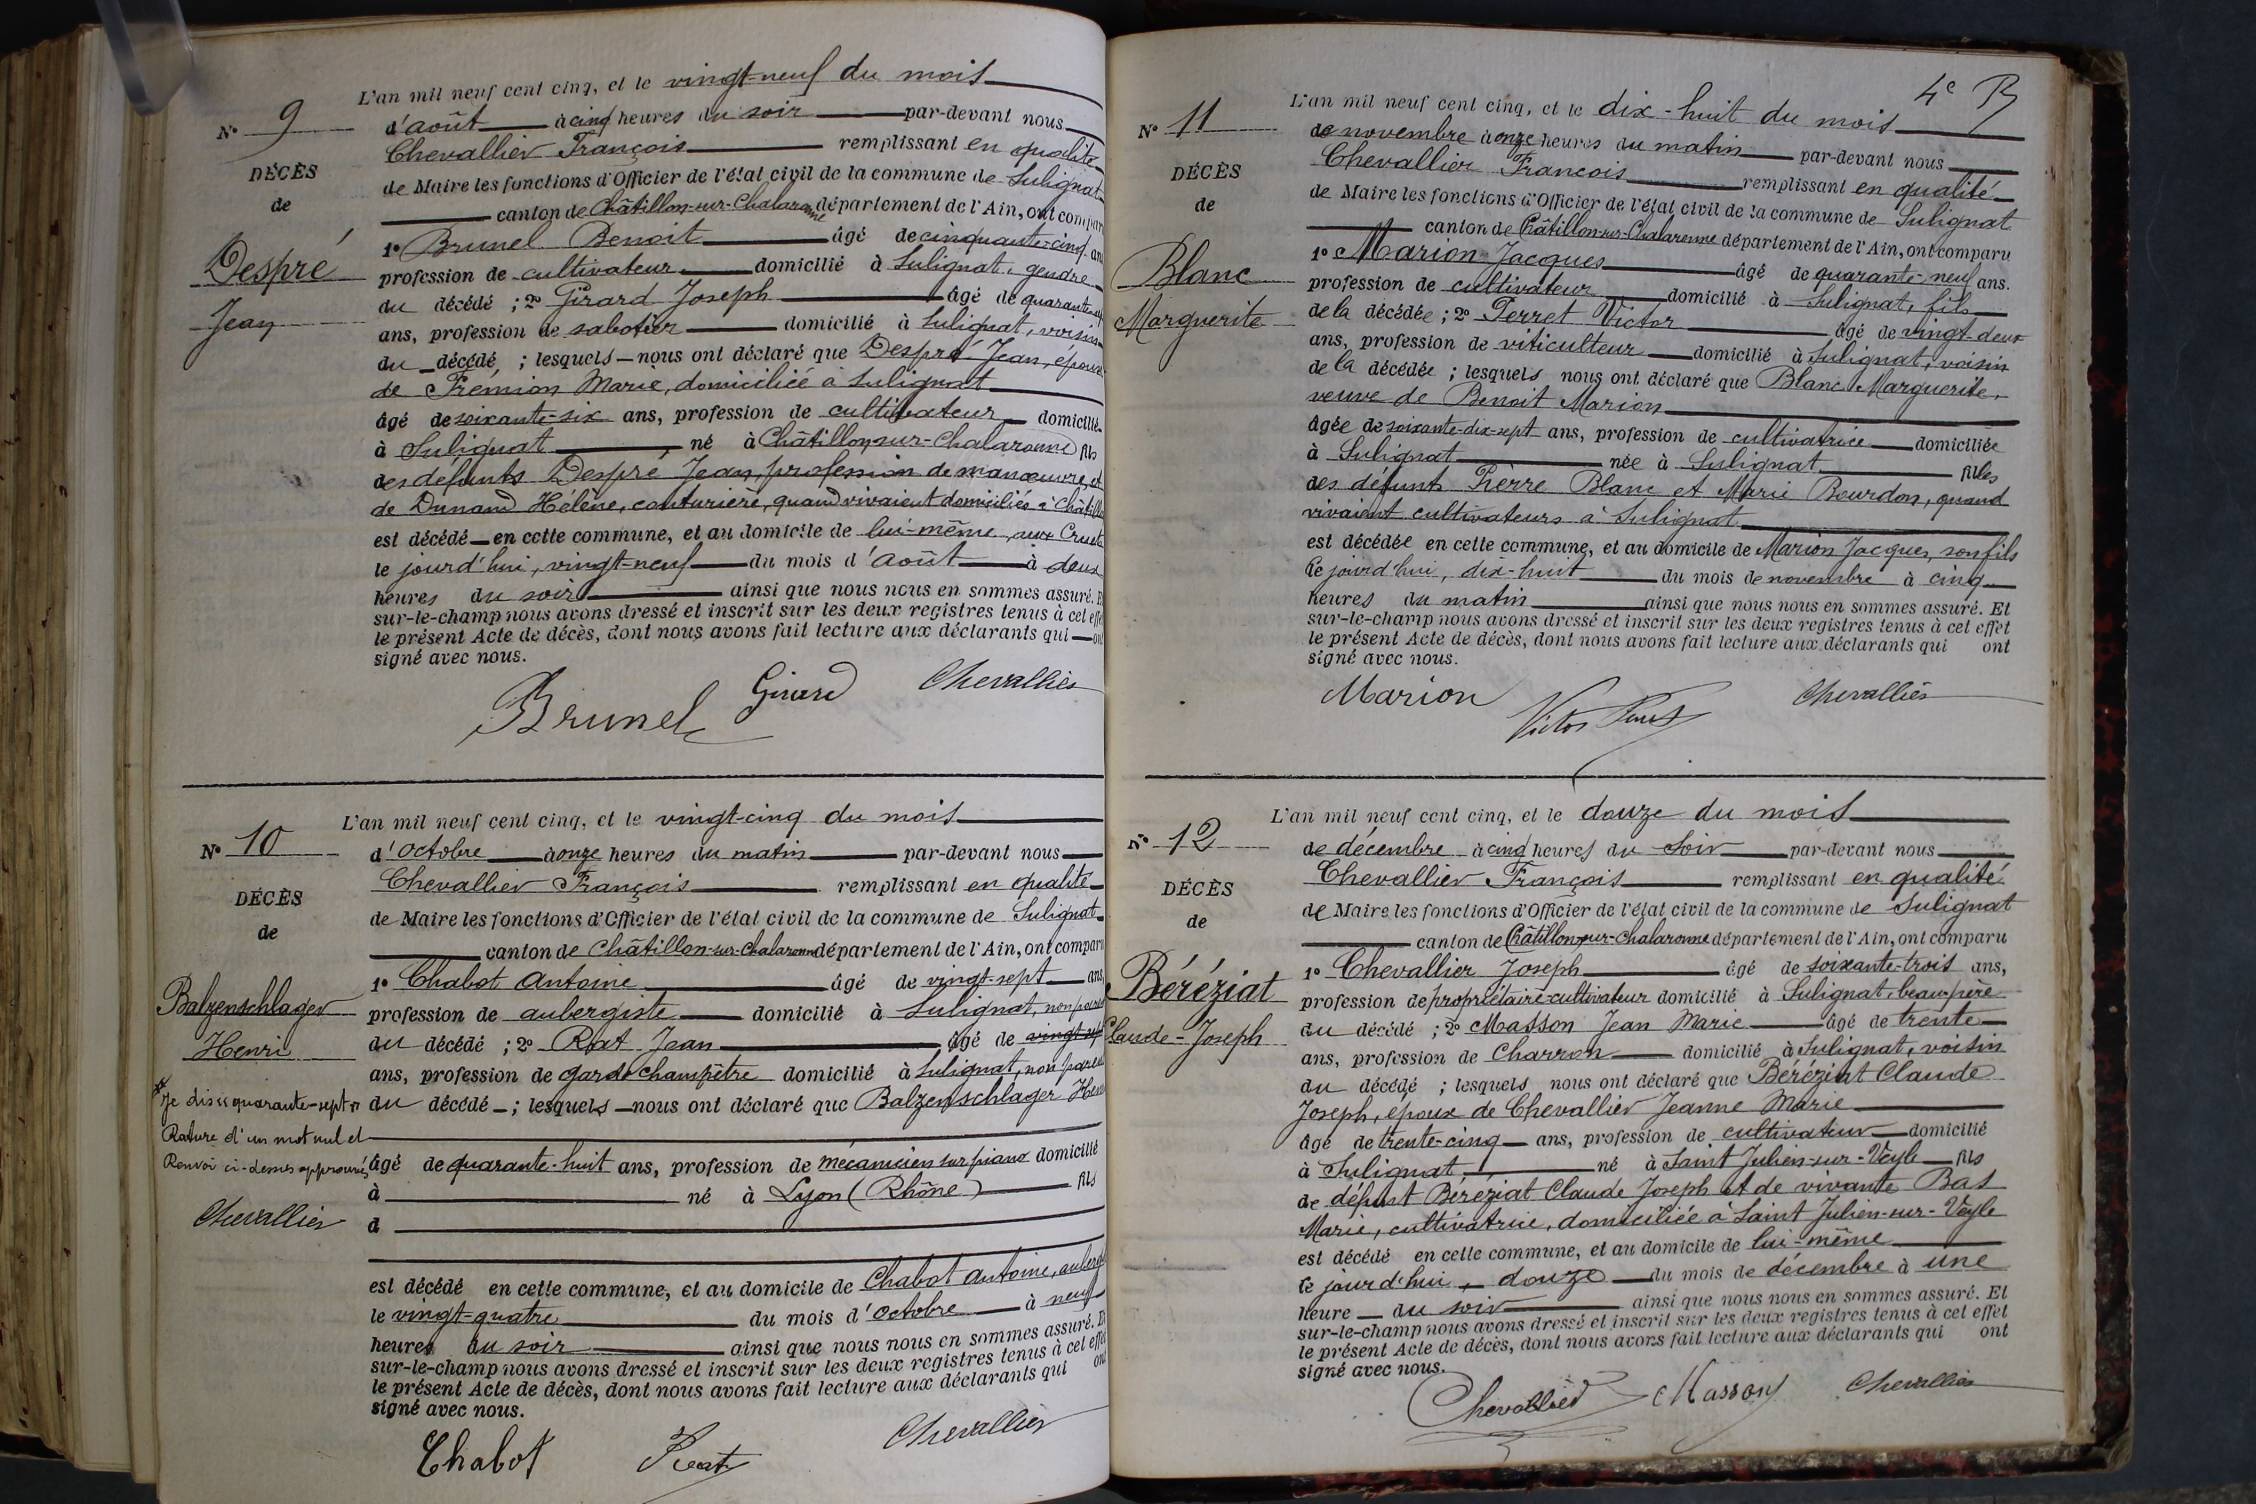 L'an mil neuf cent cinq, et le vingt-neuf du mois
N° 9
d'août à cinq heures du soir par-devant nous
Chevallier François remplissant en qualité
DÉCÈS
de Maire les fonctions d'Officier de l'état civil de la commune de Sulignat
de
canton de Châtillon-sur-Chalaronne département de l'Ain, ont comparu
1° Brunel Benoit âgé de cinquante-cinq ans
Despré
profession de cultivateur domicilié à Sulignat, gendre
Jean
du décédé ; 2° Girard Joseph âgé de quarante-sept
ans, profession de sabotier domicilié à Sulignat, voisin
du décédé ; lesquels nous ont déclaré que Despré Jean, époux
de Frémion Marie, domiciliée à Sulignat
âgé de soixante-six ans, profession de cultivateur domicilié
à Sulignat né à Châtillon-sur-Chalaronne fils
des défunts Despré Jean, profession de manœuvre, et
de Dunand Hélène, couturière, quand vivaient domiciliés à Châtillon
est décédé en cette commune, et au domicile de lui-même, aux
le jourd'hui, vingt-neuf du mois d'août à deux
heures du soir ainsi que nous nous en sommes assuré. Et
sur-le-champ nous avons dressé et inscrit sur les deux registres tenus à cet effet
le présent Acte de décès, dont nous avons fait lecture aux déclarants qui ont
signé avec nous.
Brunel Girard Chevallier
L'an mil neuf cent cinq, et le vingt-cinq du mois
N° 10
d'octobre à onze heures du matin par-devant nous
Chevallier François remplissant en qualité
DÉCÈS
de Maire les fonctions d'Officier de l'état civil de la commune de Sulignat
de
canton de Châtillon-sur-Chalaronne département de l'Ain, ont comparu
1° Chabot Antoine âgé de vingt-sept ans,
Balzenschlager
profession de aubergiste domicilié à Sulignat, non parent
Henri
du décédé ; 2° Rat Jean âgé de vingt-sept
ans, profession de garde champêtre domicilié à Sulignat, non parent
Je dis quarante-sept
du décédé ; lesquels nous ont déclaré que Balzenschlager Henri
Rature d'un mot nul et
Renvoi ci-dessus approuvés
âgé de quarante-huit ans, profession de mécanicien sur piano domicilié
à né à Lyon (Rhône) fils
Chevallier
d
est décédé en cette commune, et au domicile de Chabot Antoine, aubergiste
le vingt-quatre du mois d'octobre à neuf
heures du soir ainsi que nous nous en sommes assuré. Et
sur-le-champ nous avons dressé et inscrit sur les deux registres tenus à cet effet
le présent Acte de décès, dont nous avons fait lecture aux déclarants qui ont
signé avec nous.
Chabot Rat Chevallier
4e
L'an mil neuf cent cinq, et le dix-huit du mois
N° 11
de novembre à onze heures du matin par-devant nous
Chevallier François remplissant en qualité
DÉCÈS
de Maire les fonctions d'Officier de l'état civil de la commune de Sulignat
de
canton de Châtillon-sur-Chalaronne département de l'Ain, ont comparu
1° Marion Jacques âgé de quarante-neuf ans.
Blanc
profession de cultivateur domicilié à Sulignat, fils
Marguerite
de la décédée ; 2° Perret Victor âgé de vingt-deux
ans, profession de viticulteur domicilié à Sulignat, voisin
de la décédée ; lesquels nous ont déclaré que Blanc Marguerite,
veuve de Benoit Marion
âgée de soixante-dix-sept ans, profession de cultivatrice domiciliée
à Sulignat née à Sulignat filles
des défunts Pierre Blanc et Marie Bourdon, quand
vivaient cultivateurs à Sulignat
est décédée en cette commune, et au domicile de Marion Jacques, son fils
le jourd'hui, dix-huit du mois de novembre à cinq
heures du matin ainsi que nous nous en sommes assuré. Et
sur-le-champ nous avons dressé et inscrit sur les deux registres tenus à cet effet
le présent Acte de décès, dont nous avons fait lecture aux déclarants qui ont
signé avec nous.
Marion Victor Perret Chevallier
L'an mil neuf cent cinq, et le douze du mois
N° 12
de décembre à cinq heures du soir par-devant nous
Chevallier François remplissant en qualité
DÉCÈS
de Maire les fonctions d'Officier de l'état civil de la commune de Sulignat
de
canton de Châtillon-sur-Chalaronne département de l'Ain, ont comparu
1° Chevallier Joseph âgé de soixante-trois ans,
Béréziat
profession de propriétaire-cultivateur domicilié à Sulignat, beau-père
Claude-Joseph
du décédé ; 2° Masson Jean Marie âgé de trente
ans, profession de charron domicilié à Sulignat, voisin
du décédé ; lesquels nous ont déclaré que Béréziat Claude
Joseph, époux de Chevallier Jeanne Marie
âgé de trente-cinq ans, profession de cultivateur domicilié
à Sulignat né à Saint Julien-sur-Veyle fils
de défunt Béréziat Claude Joseph et de vivante Bas
Marie, cultivatrice, domiciliée à Saint Julien-sur-Veyle
est décédé en cette commune, et au domicile de lui-même
le jourd'hui, douze du mois de décembre à une
heure du soir ainsi que nous nous en sommes assuré. Et
sur-le-champ nous avons dressé et inscrit sur les deux registres tenus à cet effet
le présent Acte de décès, dont nous avons fait lecture aux déclarants qui ont
signé avec nous.
Chevallier Masson Chevallier